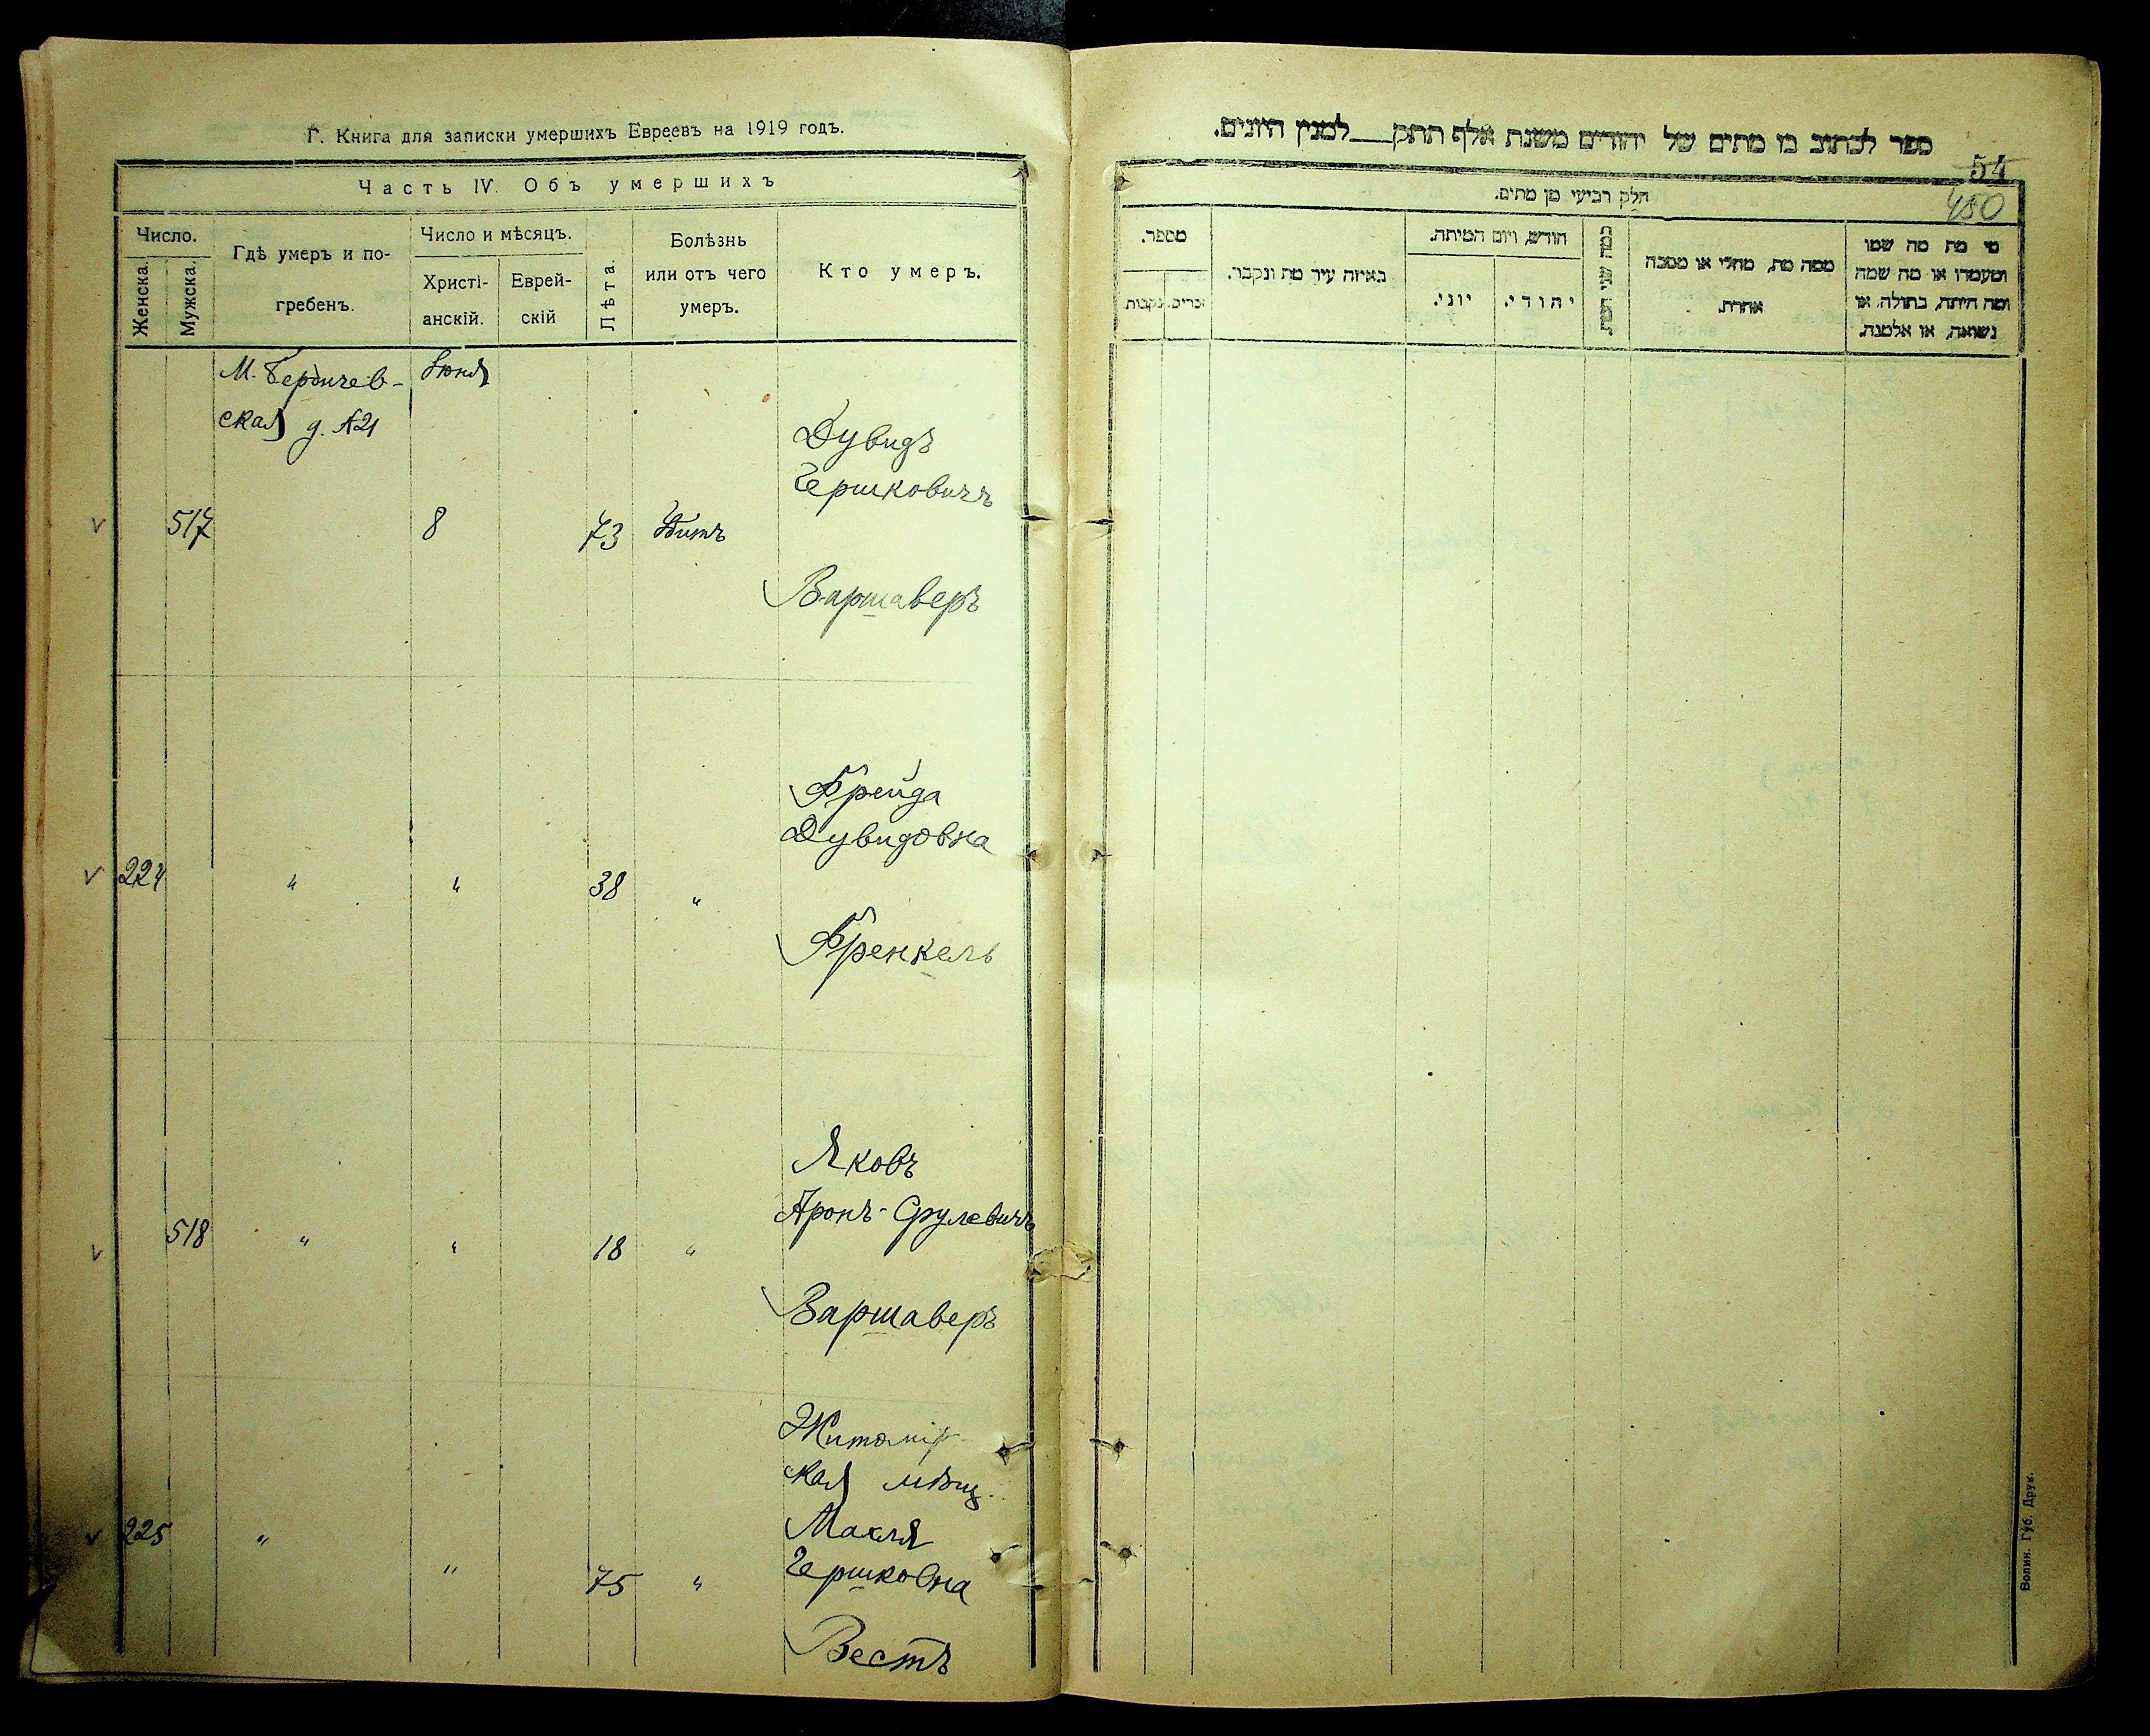 Г. Книга для записки умершихъ Евреевъ на 1919 годъ.
Часть IV. Объ умершихъ
Число.
Женска.
Мужска.
Гдѣ умеръ и по-
гребенъ.
Число и мѣсяцъ.
Христі-
анскій.
Еврей-
скій
Лѣта.
Болѣзнь
или отъ чего
умеръ.
Кто умеръ.
М. Бердичев-
ская д. №21
Іюня
Дувидъ
Гершковичъ
517
8
73
Убитъ
Варшаверъ
Фрейда
Дувидовна
224
"
"
38
"
Френкель
Яковъ
Аронъ-Срулевичъ
518
"
"
18
"
Варшаверъ
Житомір-
ская мѣщ.
Махля
225
"
"
75
"
Гершковна
Вестъ
ספר לכתוב בו מתים של יהודים משנת אלף תתק למנין היונים.
54
450
חלק רביעי מן מתים.
מספר.
זכרים.
נקבות
באיזה עיר מת ונקבר.
חודש, ויום המיתה.
יוני.
יהודי.
כמה שני חייו.
ממה מת, מחלי או מסבה
אחרת.
מי מת מה שמו
ומעמדו או מה שמה
ומה היתה, בתולה, או
נשואה, או אלמנה.
Волин. Губ. Друк.